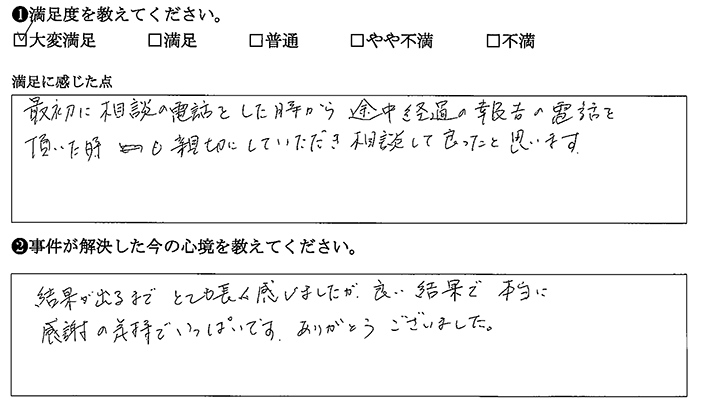 ❶満足度を教えてください。
☑大変満足 □満足 □普通 □やや不満 □不満
満足に感じた点
最初に相談の電話をした時から途中経過の報告の電話を
頂いた時も親切にしていただき相談して良ったと思います。
❷事件が解決した今の心境を教えてください。
結果が出るまでとても長く感じましたが、良い結果で本当に
感謝の気持でいっぱいです。ありがとうございました。